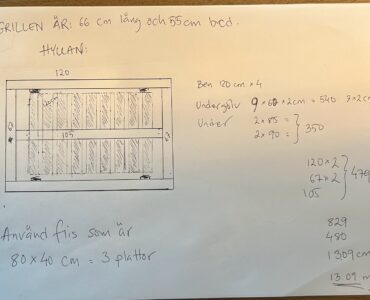 GRILLEN ÄR: 66 cm lång och 55 cm bred.
HYLLAN:
120
105
67
Ben 120 cm x 4
Undergolv 9 x 60 x 2 cm = 540
Under 2 x 85 =
2 x 90 = 350
120 x 2
67 x 2
105
829
480
1309 cm
13.09 m
Använd flis som är
80 x 40 cm = 3 plattor